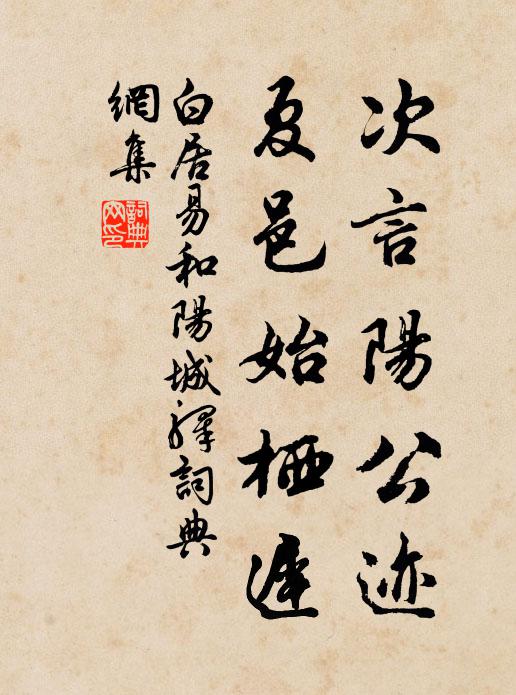 次言陽公迹
夏邑始栖遲
白居易和陽城驛詞典
網集
詞典
网印